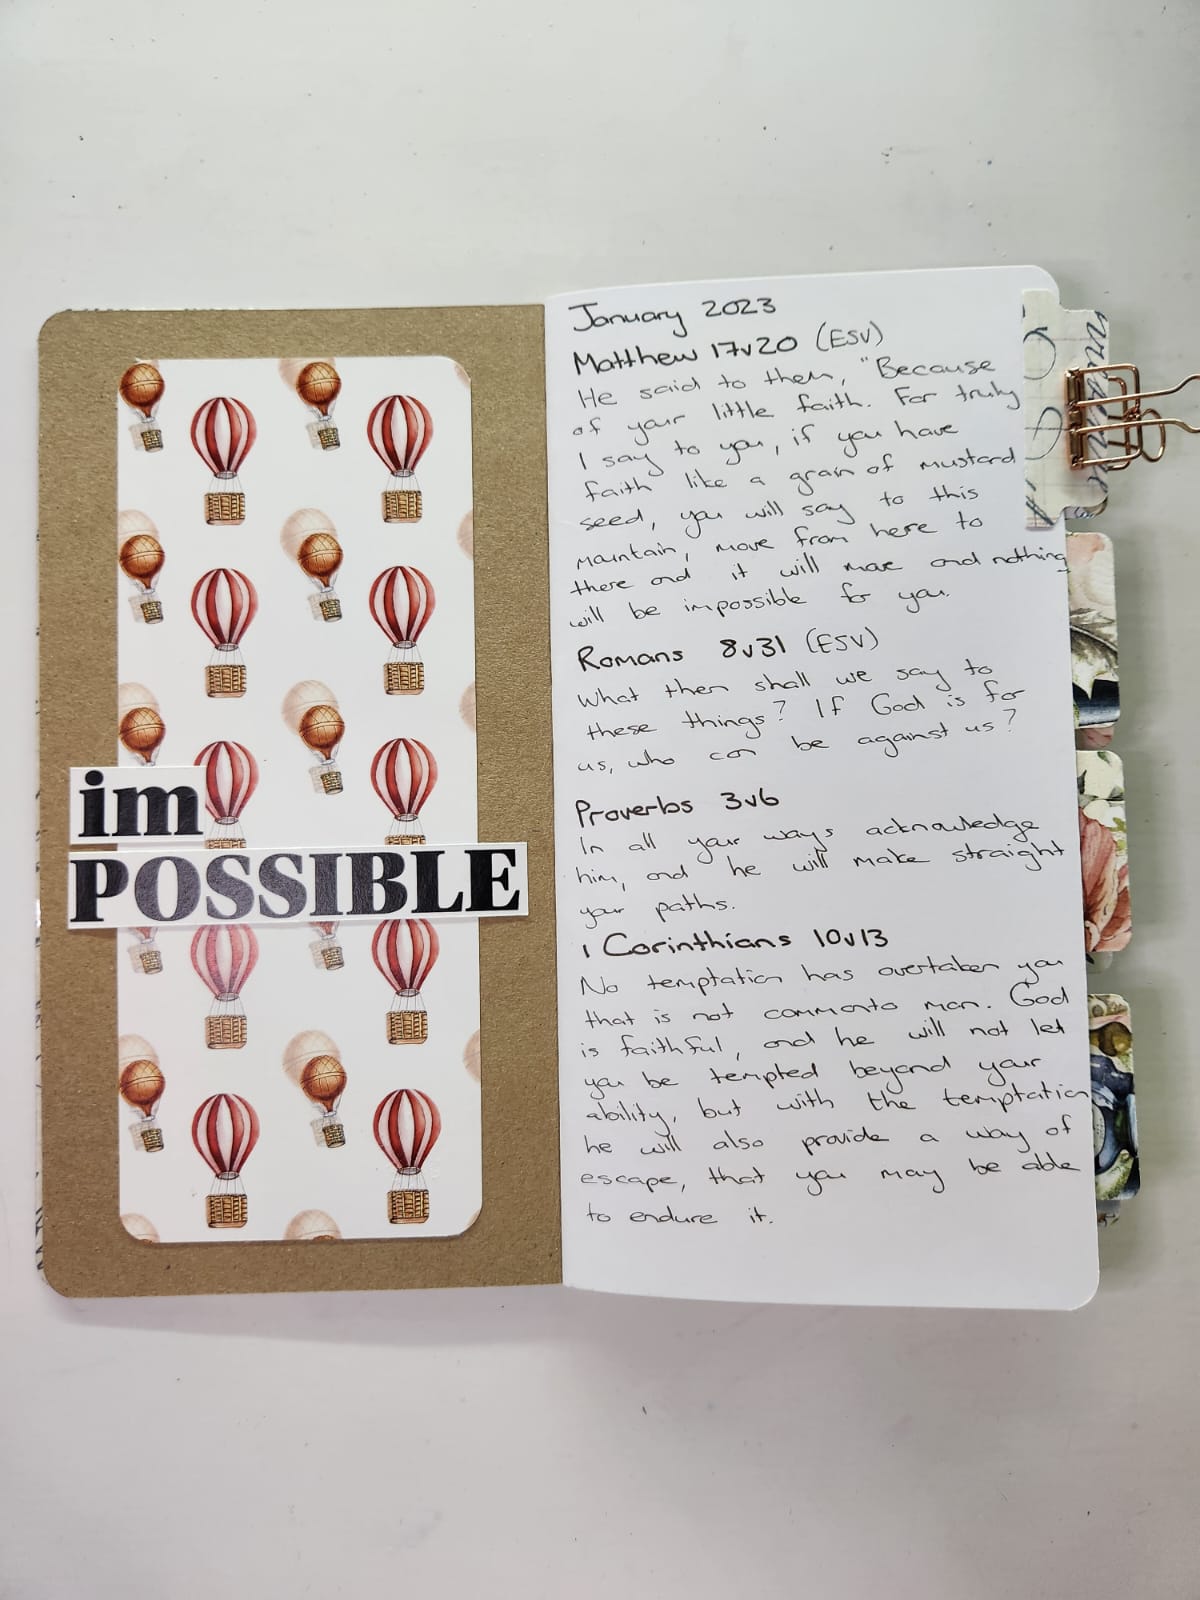 im
POSSIBLE
January 2023
Matthew 17v20 (ESV)
He said to them, "Because
of your little faith. For truly
I say to you, if you have
faith like a grain of mustard
seed, you will say to this
mountain, move from here to
there and it will move and nothing
will be impossible for you.
Romans 8v31 (ESV)
What then shall we say to
these things? If God is for
us, who can be against us?
Proverbs 3v6
In all your ways acknowledge
him, and he will make straight
your paths.
1 Corinthians 10v13
No temptation has overtaken you
that is not common to man. God
is faithful, and he will not let
you be tempted beyond your
ability, but with the temptation
he will also provide a way of
escape, that you may be able
to endure it.